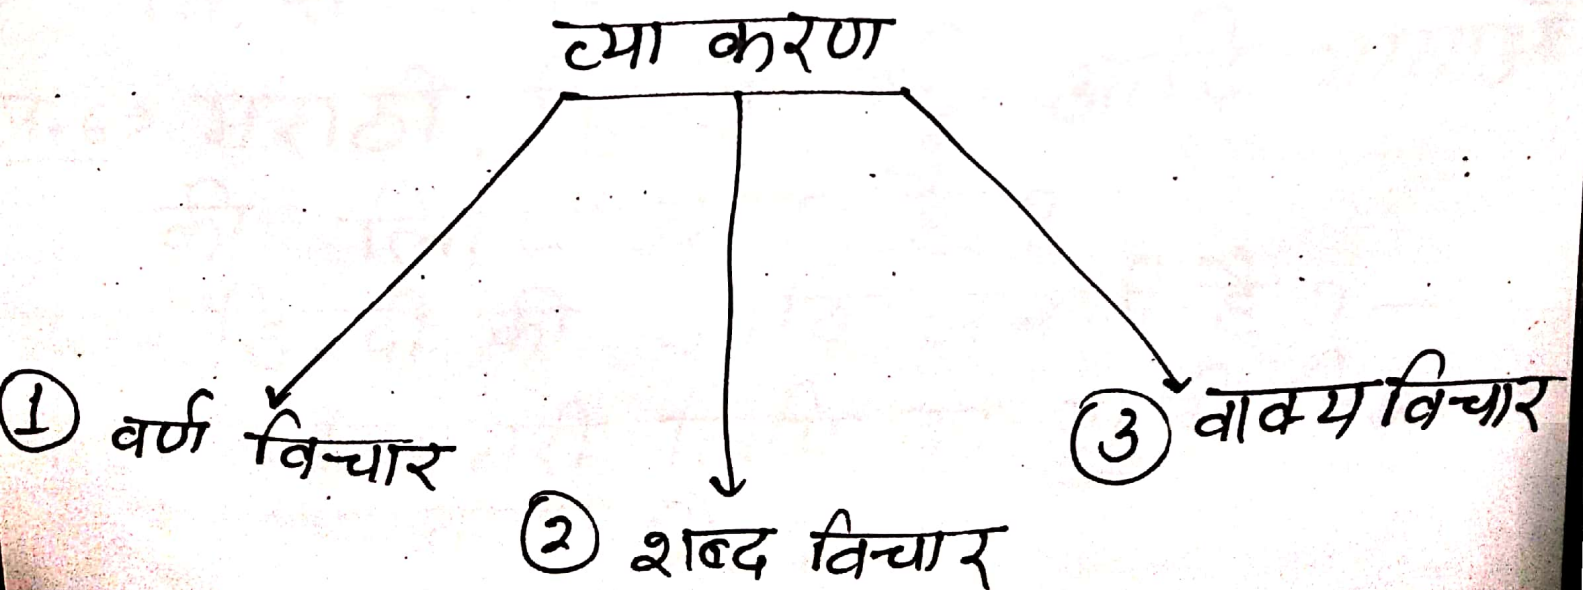 व्याकरण
① वर्ण विचार
② शब्द विचार
③ वाक्य विचार